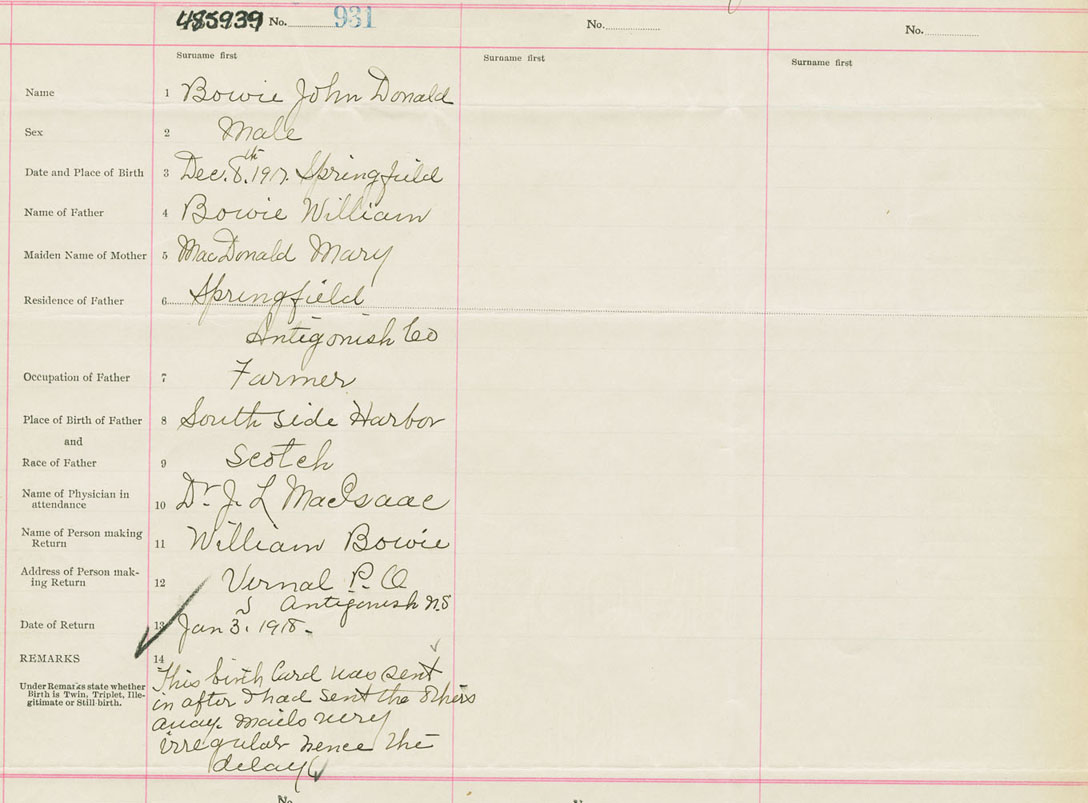 485939 No. 931 No. No.
Surname first Surname first Surname first
Name 1 Bowie John Donald
Sex 2 Male
Date and Place of Birth 3 Dec. 8.th 1917. Springfield
Name of Father 4 Bowie William
Maiden Name of Mother 5 MacDonald Mary
Residence of Father 6 Springfield
Antigonish Co
Occupation of Father 7 Farmer
Place of Birth of Father 8 South side Harbor
and
Race of Father 9 Scotch
Name of Physician in
attendance 10 Dr. J. L MacIsaac
Name of Person making
Return 11 William Bowie
Address of Person mak-
ing Return 12 Vernal P. O
Antigonish N.S
Date of Return 13 Jan 3. 1918.
REMARKS 14
Under Remarks state whether
Birth is Twin, Triplet, Ille-
gitimate or Still-birth.
This birth Card was sent
in after I had sent the others
away. Mails very
irregular hence the
delay
No.